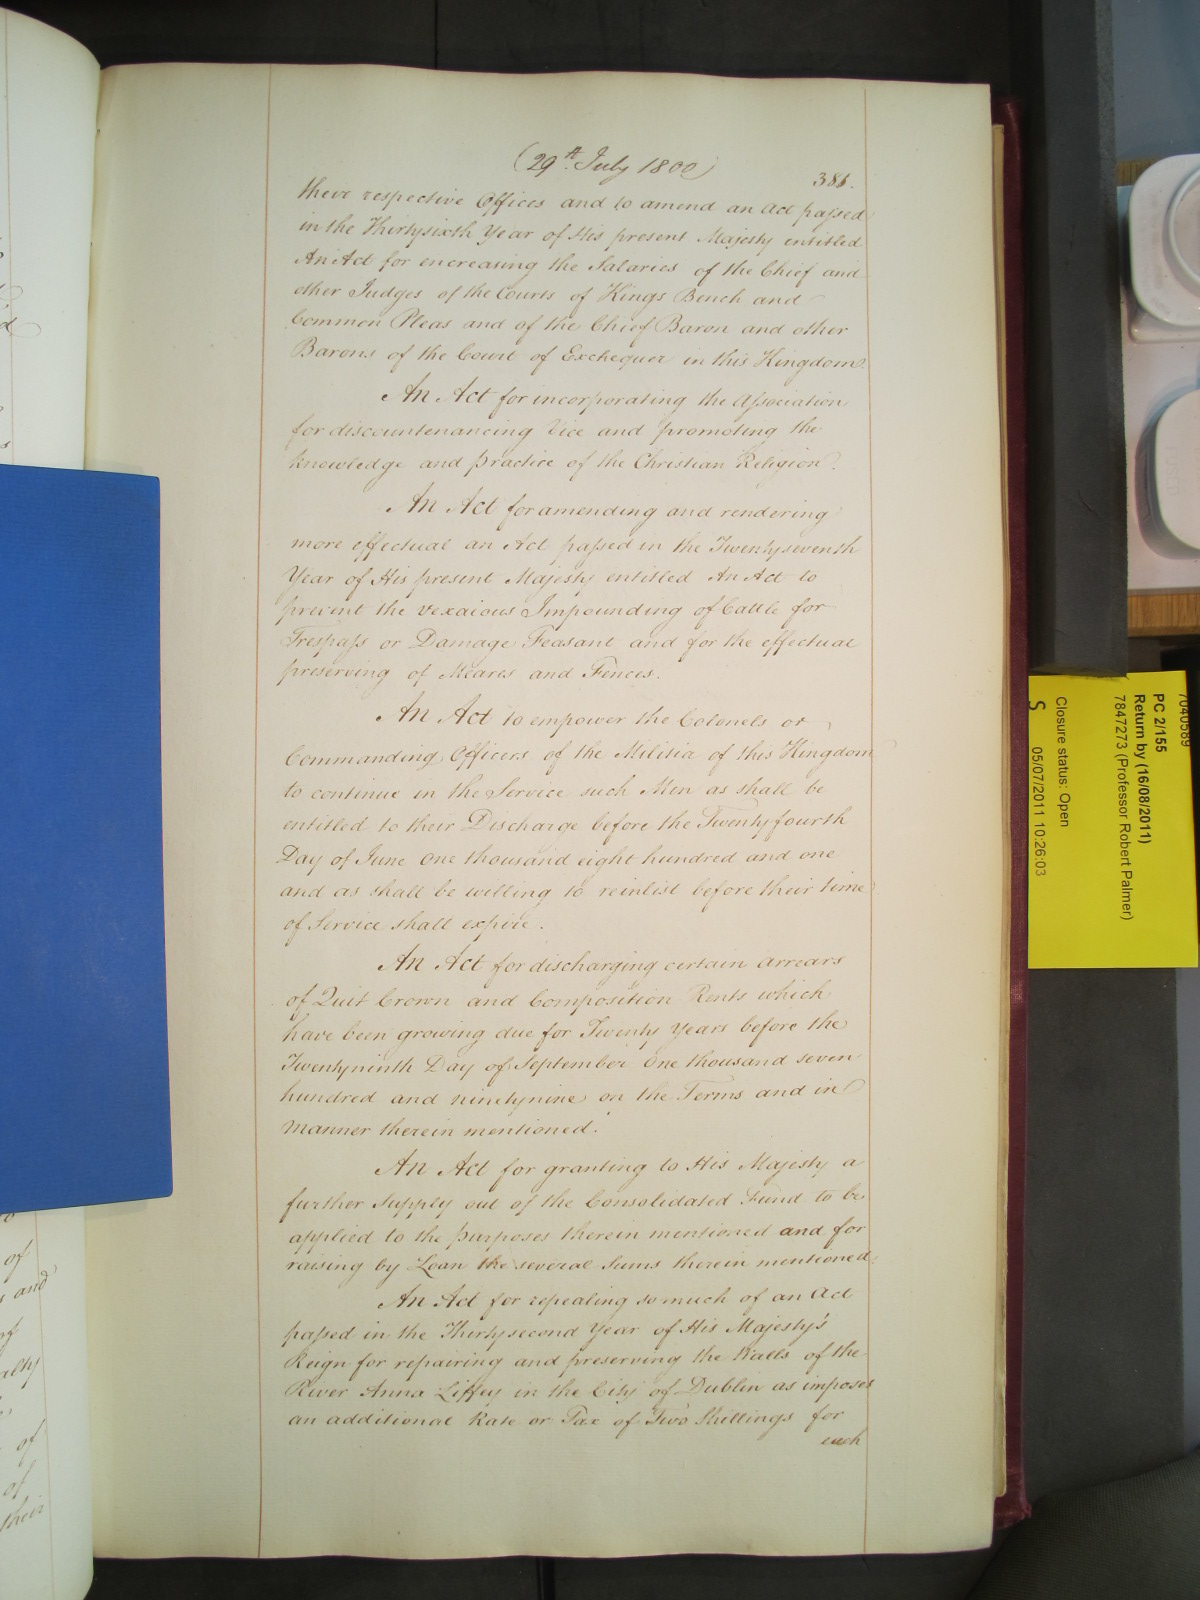 (29th July 1800)
381.
their respective Offices and to amend an Act passed
in the Thirtysixth Year of His present Majesty entitled
An Act for encreasing the Salaries of the Chief and
other Judges of the Courts of Kings Bench and
Common Pleas and of the Chief Baron and other
Barons of the Court of Exchequer in this Kingdom.
An Act for incorporating the Association
for discountenancing Vice and promoting the
knowledge and practice of the Christian Religion.
An Act for amending and rendering
more effectual an Act passed in the Twentyseventh
Year of His present Majesty entitled An Act to
prevent the vexaious Impounding of Cattle for
Trespass or Damage Feasant and for the effectual
preserving of Meares and Fences.
An Act to empower the Colonels or
Commanding Officers of the Militia of this Kingdom
to continue in the Service such Men as shall be
entitled to their Discharge before the Twentyfourth
Day of June One thousand eight hundred and one
and as shall be willing to reinlist before their time
of Service shall expire.
An Act for discharging certain Arrears
of Quit Crown and Composition Rents which
have been growing due for Twenty Years before the
Twentyninth Day of September One thousand seven
hundred and ninetynine on the Terms and in
Manner therein mentioned.
An Act for granting to His Majesty a
further Supply out of the Consolidated Fund to be
applied to the purposes therein mentioned and for
raising by Loan the several Sums therein mentioned.
An Act for repealing so much of an Act
passed in the Thirtysecond Year of His Majesty's
Reign for repairing and preserving the Walls of the
River Anna Liffey in the City of Dublin as imposes
an additional Rate or Tax of Two Shillings for
each
7040589
PC 2/155
Return by (16/08/2011)
7847273 (Professor Robert Palmer)
Closure status: Open
S
05/07/2011 10:26:03
of
and
of
of
their